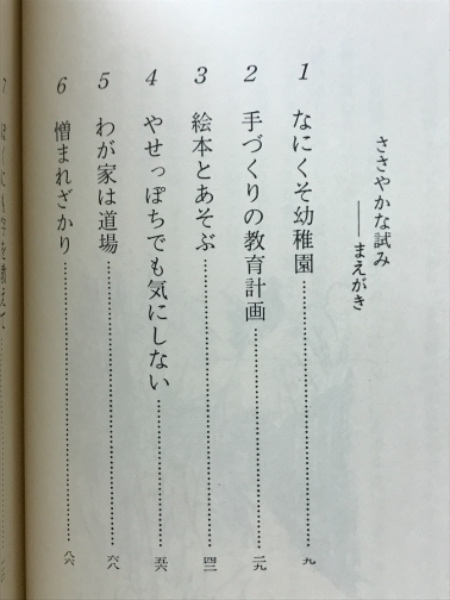 ささやかな試み
――まえがき
1 なにくそ幼稚園……九
2 手づくりの教育計画……二九
3 絵本とあそぶ……四二
4 やせっぽちでも気にしない……五六
5 わが家は道場……六八
6 憎まれざかり……八六
7